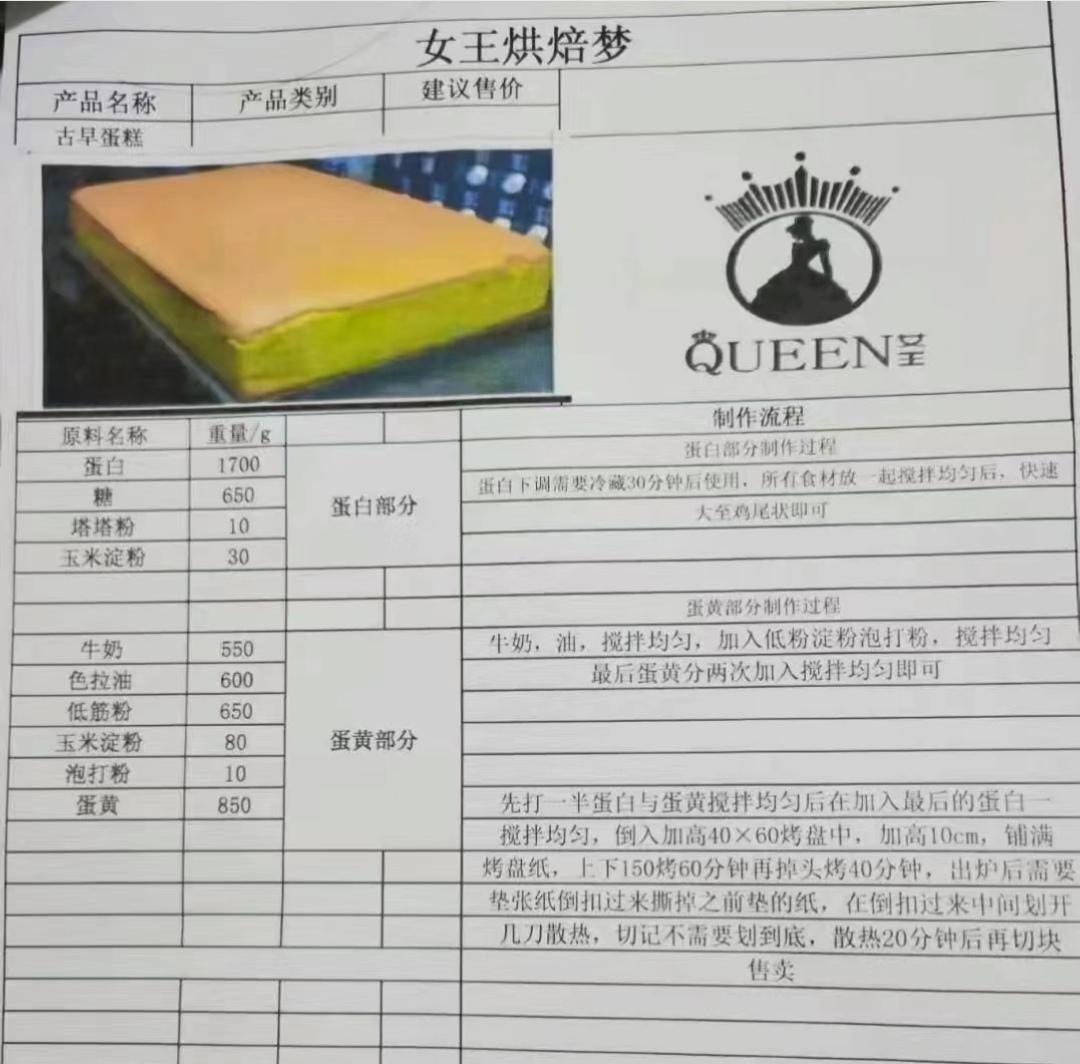 女王烘焙梦
产品名称 产品类别 建议售价
古早蛋糕
QUEEN女王
原料名称 重量/g 制作流程
蛋白部分制作过程
蛋白 1700
蛋白下调需要冷藏30分钟后使用，所有食材放一起搅拌均匀后，快速
糖 650 蛋白部分
大至鸡尾状即可
塔塔粉 10
玉米淀粉 30
蛋黄部分制作过程
牛奶 550 牛奶，油，搅拌均匀，加入低粉淀粉泡打粉，搅拌均匀
色拉油 600 最后蛋黄分两次加入搅拌均匀即可
低筋粉 650
玉米淀粉 80 蛋黄部分
泡打粉 10
蛋黄 850 先打一半蛋白与蛋黄搅拌均匀后在加入最后的蛋白一
搅拌均匀，倒入加高40×60烤盘中，加高10cm，铺满
烤盘纸，上下150烤60分钟再掉头烤40分钟，出炉后需要
垫张纸倒扣过来撕掉之前垫的纸，在倒扣过来中间划开
几刀散热，切记不需要划到底，散热20分钟后再切块
售卖